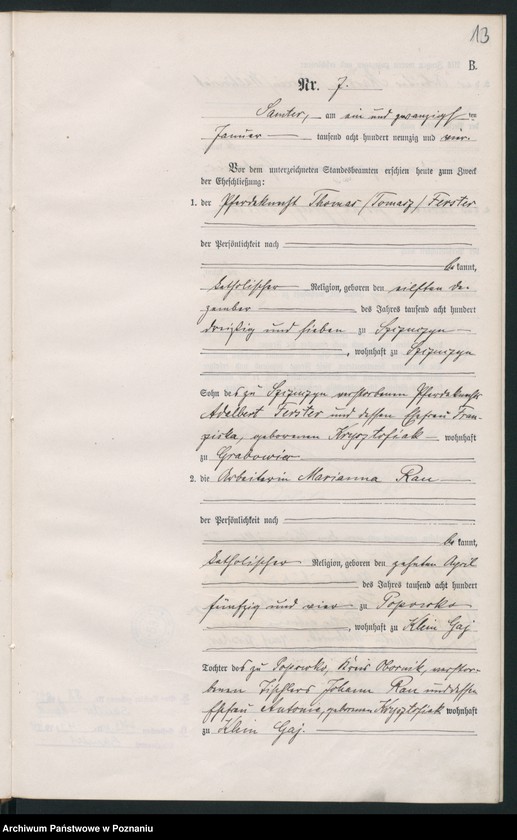 13
B.
Nr. 7.
Samter, am ein und zwanzigsten
Januar tausend acht hundert neunzig und vier.
Vor dem unterzeichneten Standesbeamten erschien heute zum Zweck
der Eheschließung:
1. der Pferdeknecht Thomas (Tomasz) Ferster
der Persönlichkeit nach
be kannt,
katholischer Religion, geboren den eilften De-
zember des Jahres tausend acht hundert
dreißig und sieben zu
, wohnhaft zu
Sohn des zu verstorbenen Pferdeknechts
Adelbert Ferster und dessen Ehefrau Fran-
ziska, geborenen Krzysztofiak wohnhaft
zu Grabowiec
2. die Arbeiterin Marianna Rau
der Persönlichkeit nach
be kannt,
katholischer Religion, geboren den zehnten April
des Jahres tausend acht hundert
fünfzig und vier zu Popowko
, wohnhaft zu Klein Gaj
Tochter des zu Popowko, Kreis Obornik, verstor-
benen Tischlers Johann Rau und dessen
Ehefrau Antonie, geborenen Krzysztofiak wohnhaft
zu Klein Gaj.
Archiwum Państwowe w Poznaniu